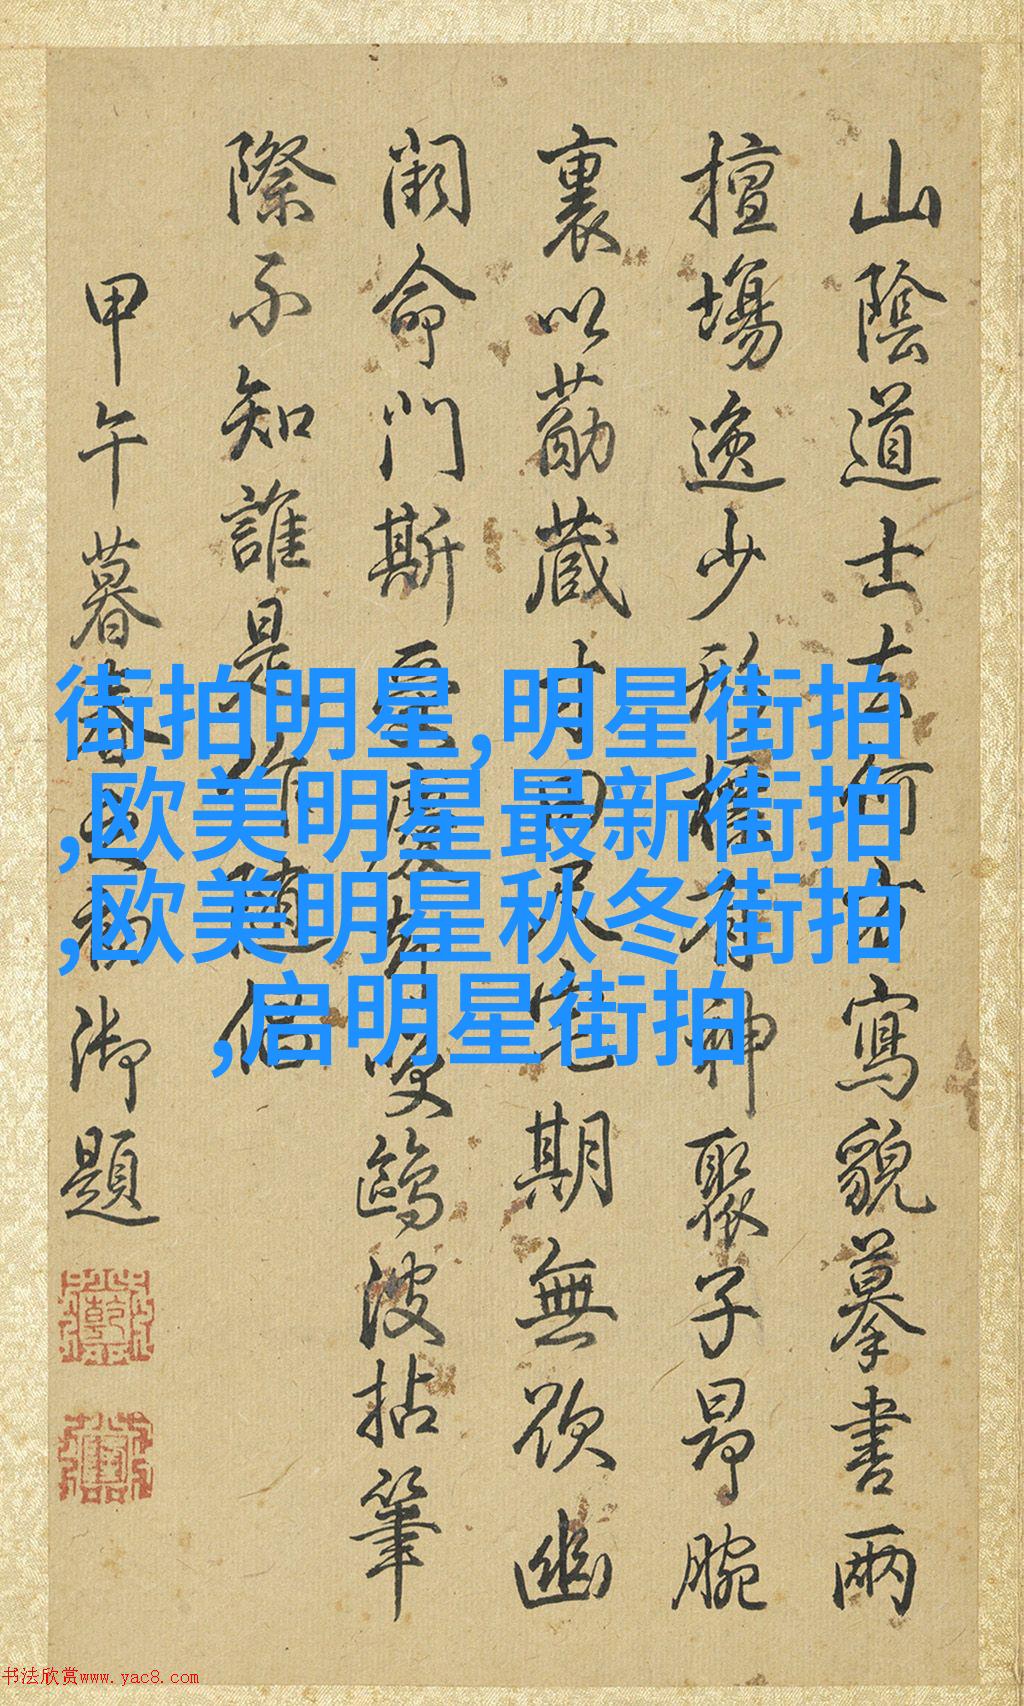 山陰道士去何方寫貌摹書兩
擅場逸少形有神聚子昂腕
裏以藏寸田尺宅期無欲幽
闕命門斯叟鷗波拈筆
際不知誰是
甲午暮春之初御題
街拍明星,明星街拍
,欧美明星最新街拍
,欧美明星秋冬街拍
,启明星街拍
书法欣赏www.yac8.com